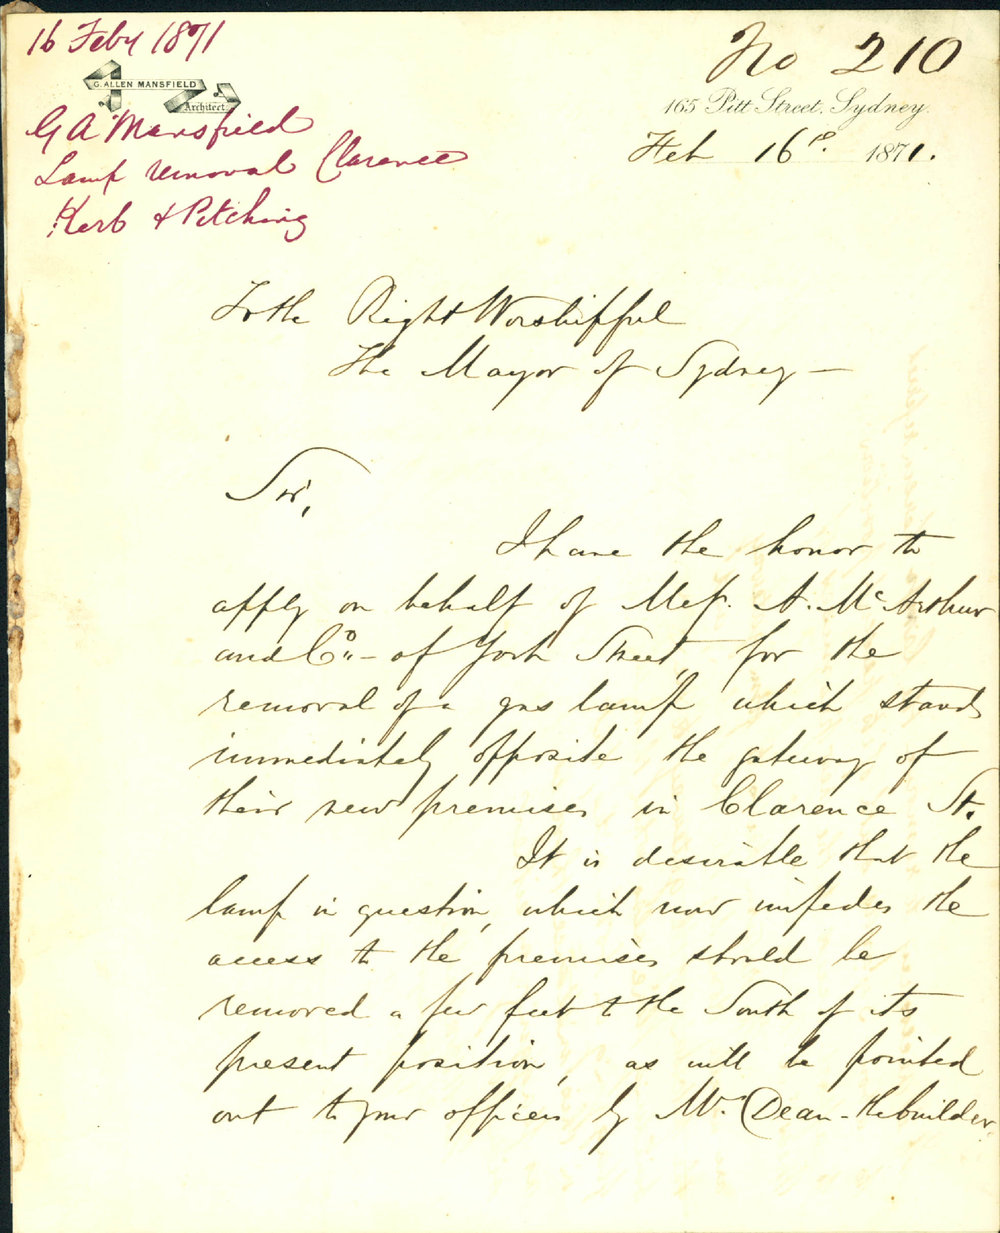 16 Feby 1871
No 210
G. ALLEN MANSFIELD
Architect.
165 Pitt Street, Sydney.
Feb 16th. 1871.
G A Mansfield
Lamp removal Clarence
Kerb & Pitching
To the Right Worshipful
The Mayor of Sydney —
Sir,
I have the honor to
apply on behalf of Mess. A. McArthur
and Co. - of York Street, for the
removal of a gas lamp which stands
immediately opposite the gateway of
their new premises in Clarence St.
It is desirable that the
lamp in question, which now impedes the
access to the premises should be
removed a few feet to the South of its
present position, as will be pointed
out to your officers by Mr. Dean - the builder.